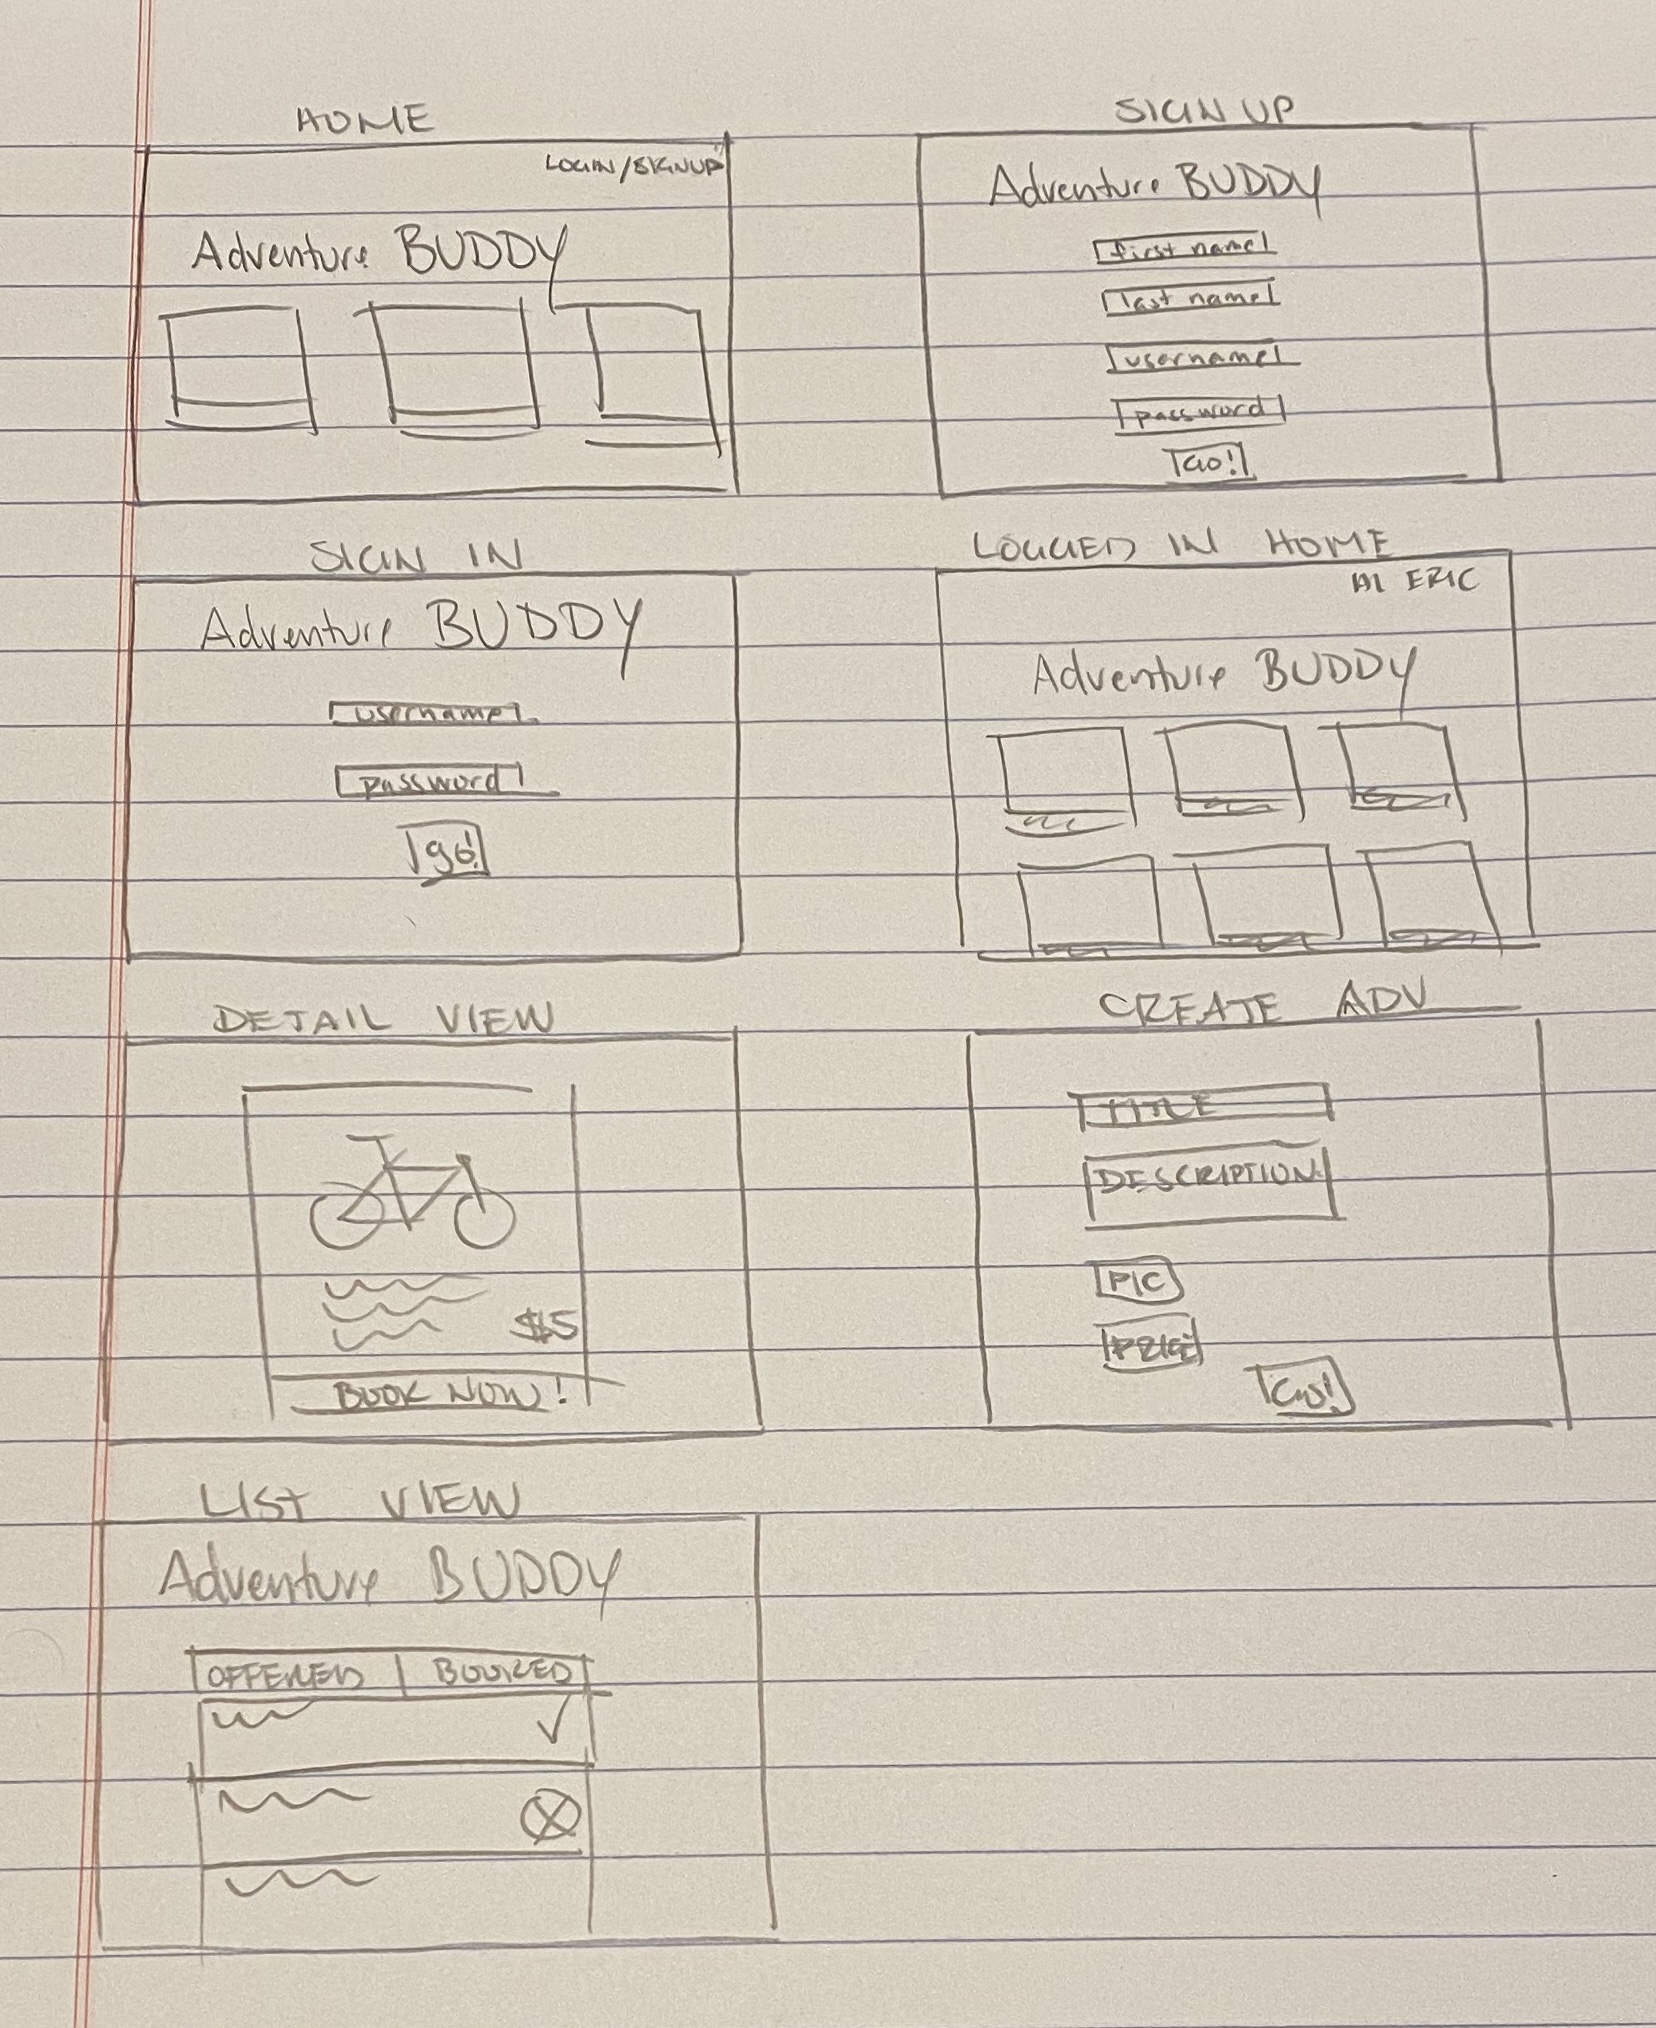 HOME
LOGIN/SIGNUP
Adventure BUDDY
SIGN UP
Adventure BUDDY
first name
last name
username
password
Go!
SIGN IN
Adventure BUDDY
username
password
go!
LOGGED IN HOME
HI ERIC
Adventure BUDDY
DETAIL VIEW
$5
BOOK NOW!
CREATE ADV
TITLE
DESCRIPTION
PIC
PRICE
Go!
LIST VIEW
Adventure BUDDY
OFFERED | BOOKED